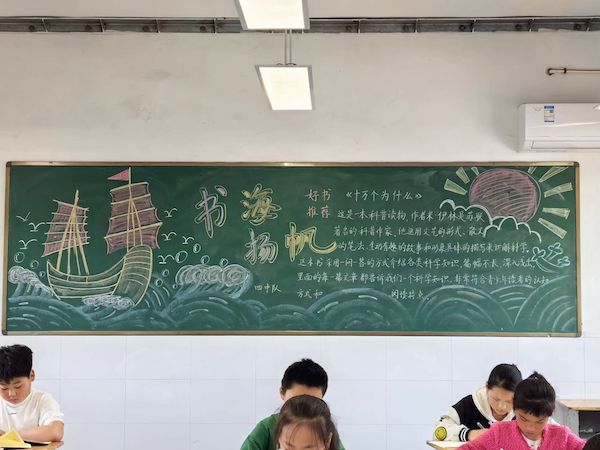 书海
扬帆
四中队
好书 《十万个为什么》
推荐 这是一本科普读物,作者米·伊林是苏联
著名的科普作家,他运用文艺的形式、散文
的笔法、生动有趣的故事和对象具体的描写来讲解科学。
这本书采用一问一答的方式介绍各类科学知识,篇幅不长,深入浅出,
里面的每一篇文章都告诉我们一个科学知识,非常符合青少年读者的认知
方式和 阅读特点。